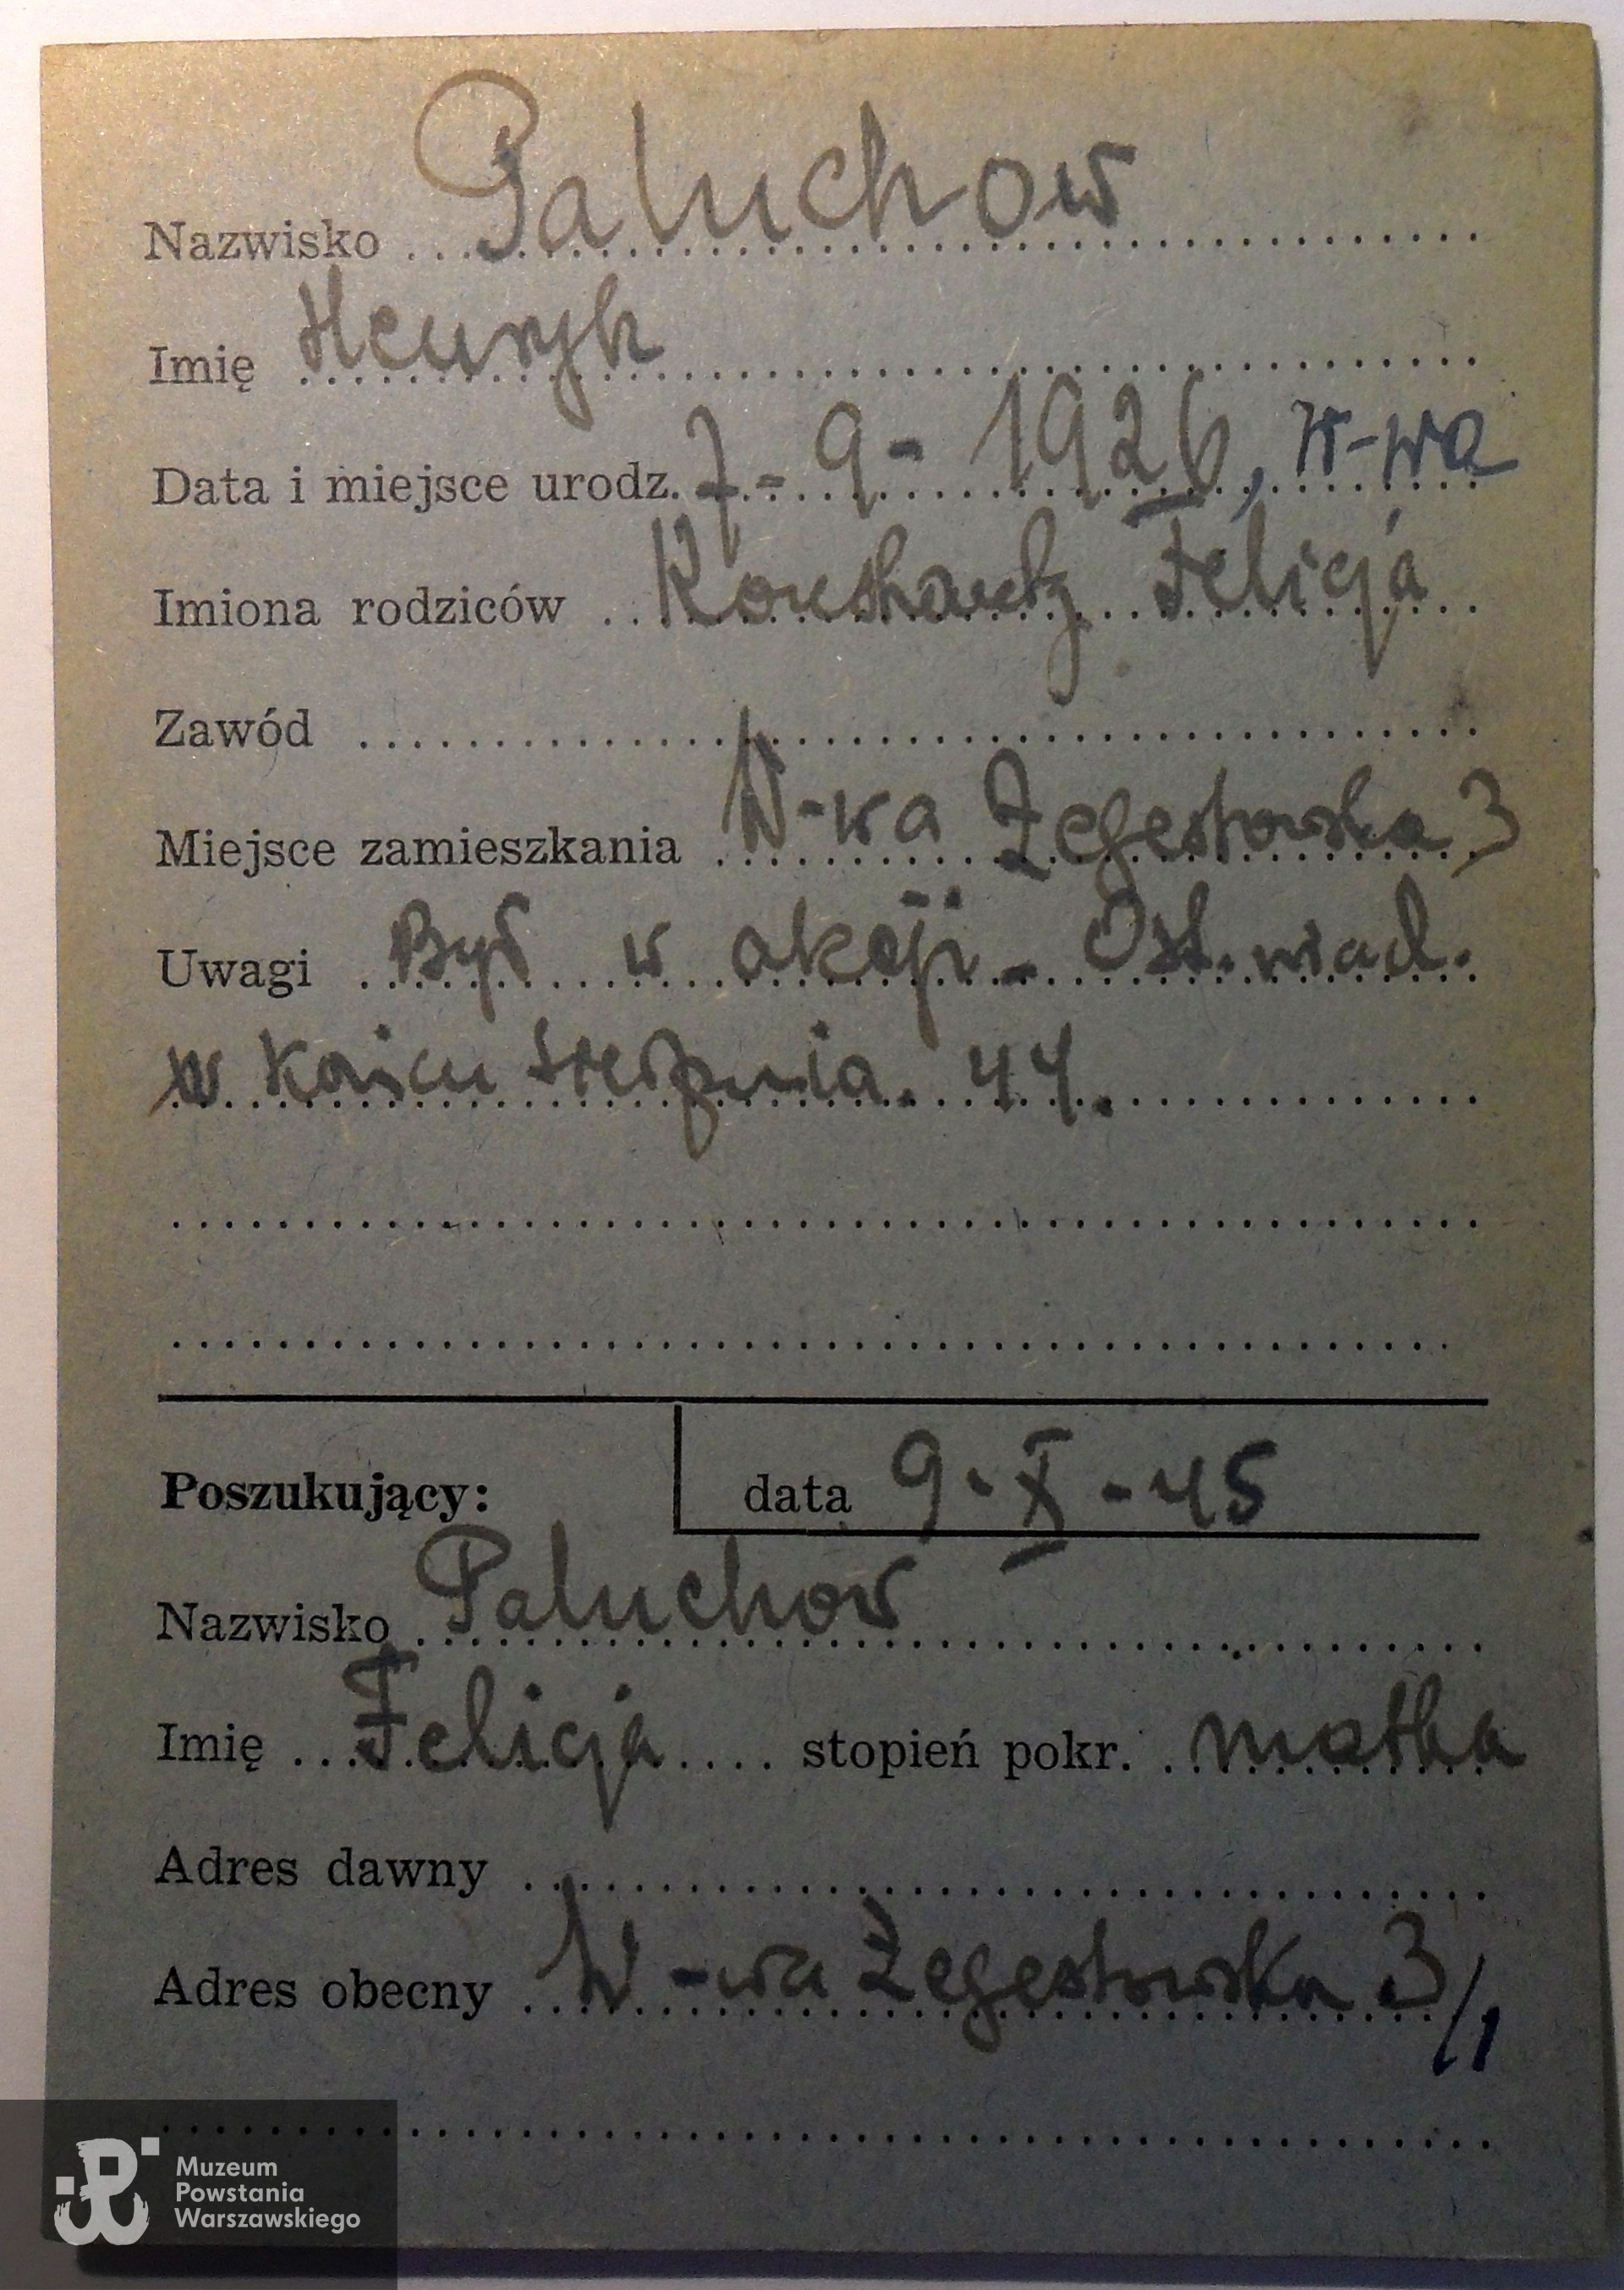 Nazwisko Paluchow
Imię Henryk
Data i miejsce urodz. 7-9-1926, W-wa
Imiona rodziców Felicja
Zawód
Miejsce zamieszkania W-wa Żegestowska 3
Uwagi Był w akcji - Ost. wiad.
w końcu sierpnia. 44.
Poszukujący: data 9-X-45
Nazwisko Paluchow
Imię Felicja stopień pokr. matka
Adres dawny
Adres obecny W-wa Żegestowska 3/1
Muzeum
Powstania
Warszawskiego